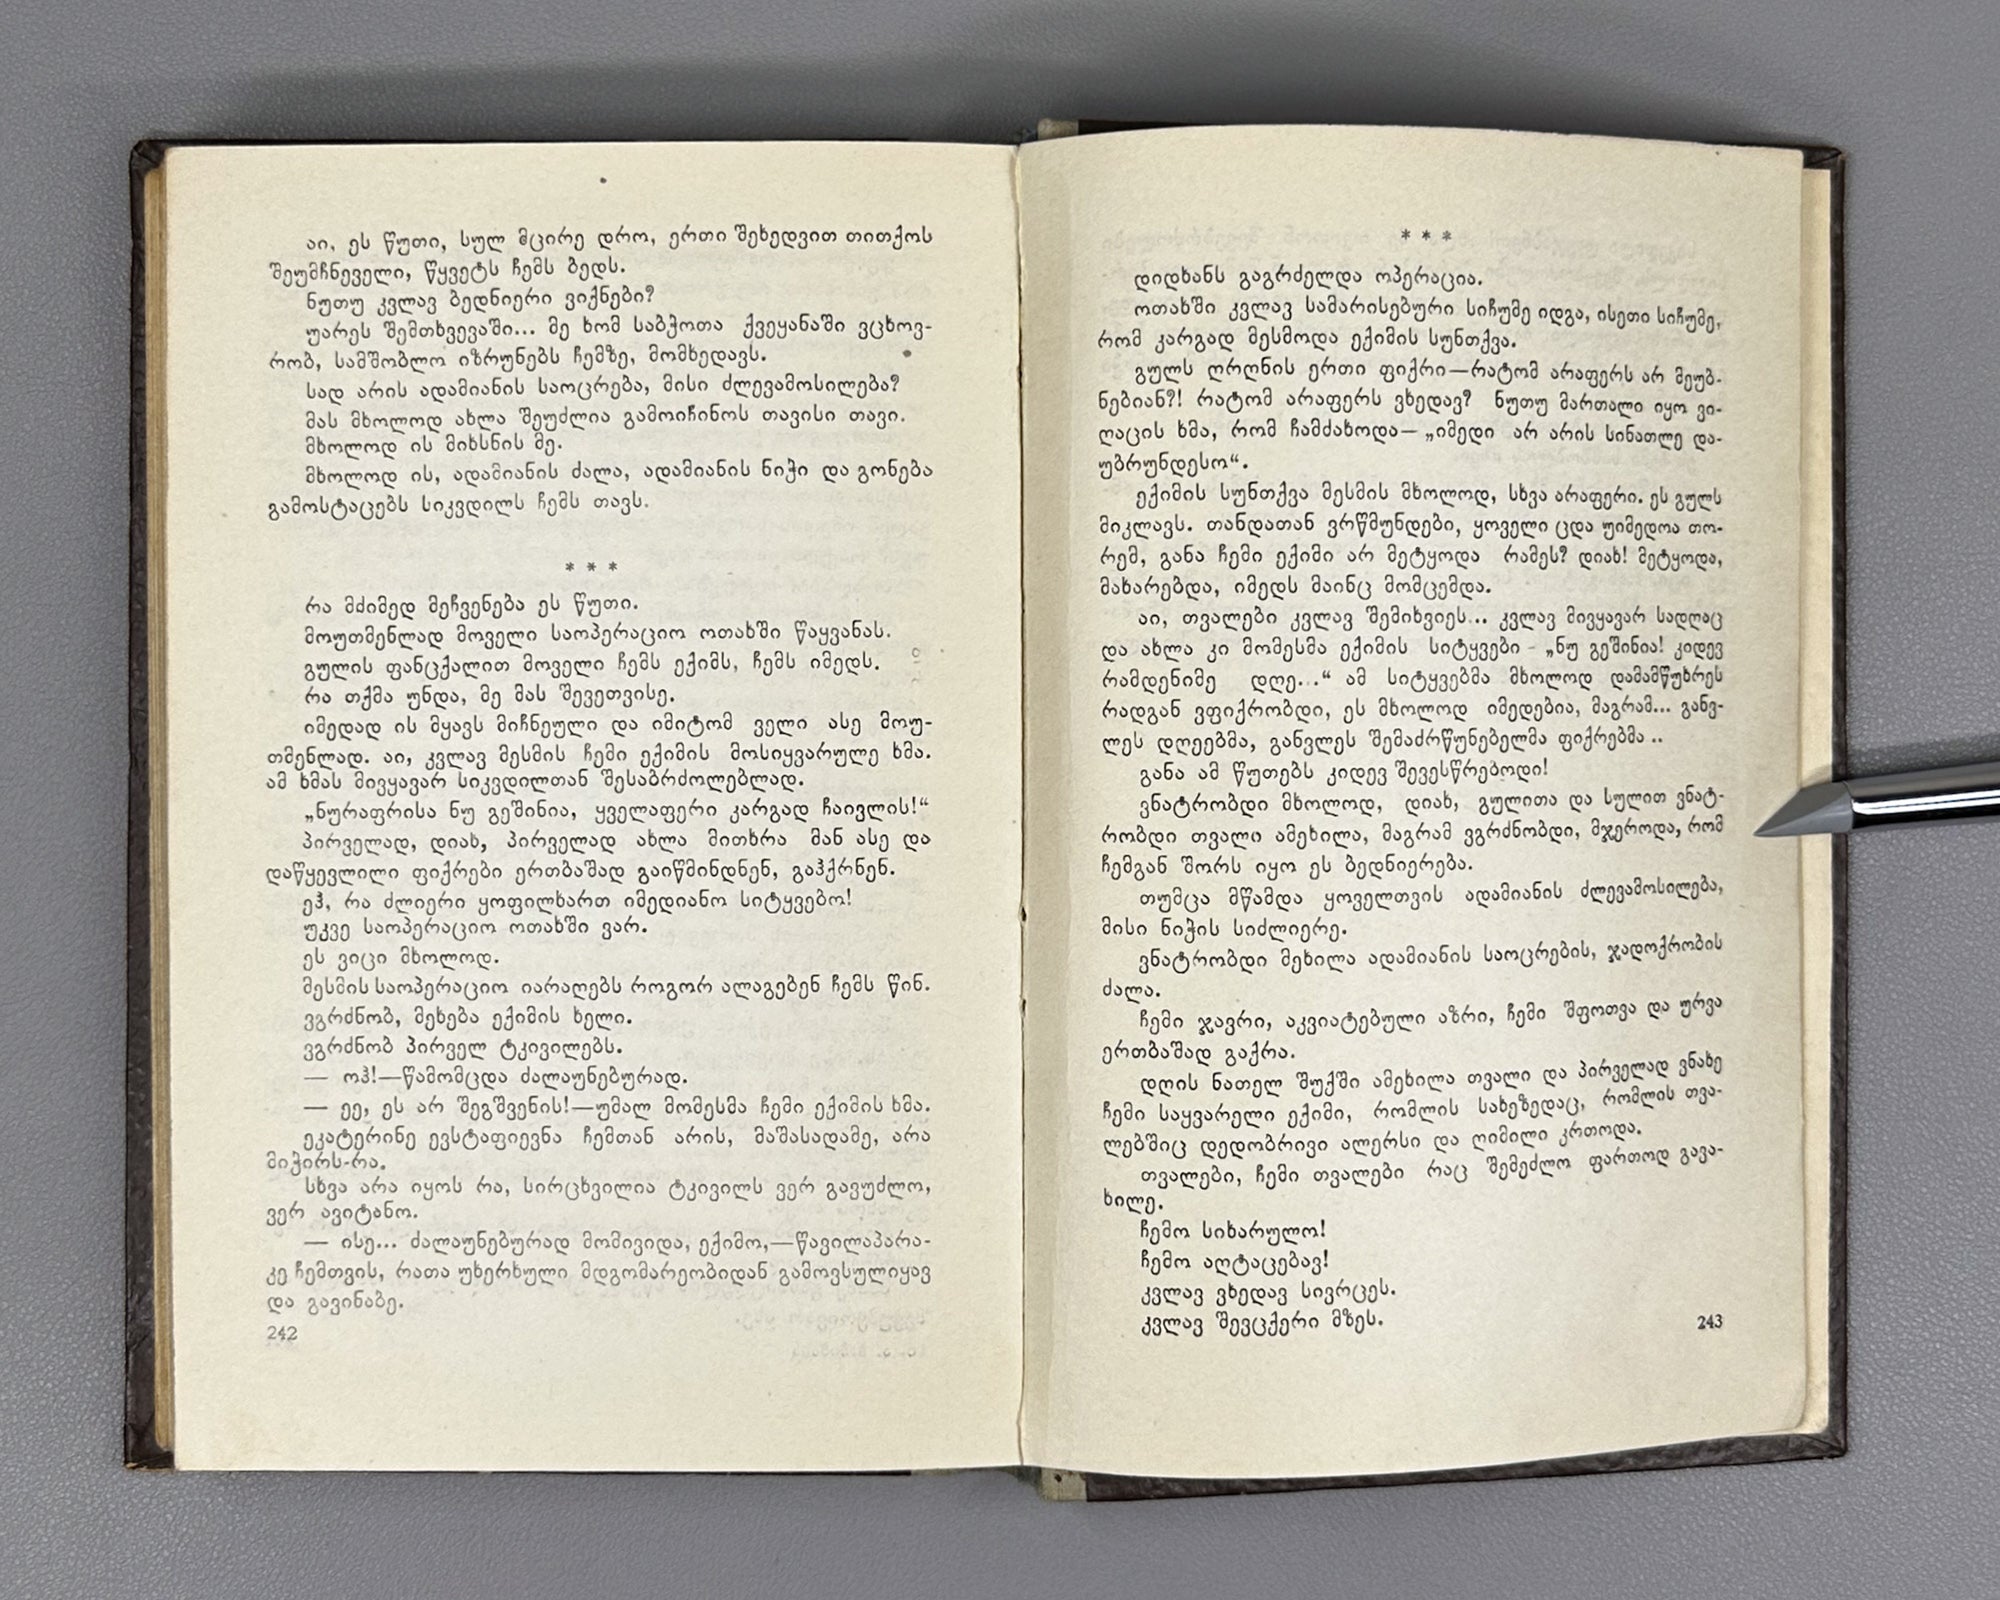 აი, ეს წუთი, სულ მცირე დრო, ერთი შეხედვით თითქოს
შეუმჩნეველი, წყვეტს ჩემს ბედს.
ნუთუ კვლავ ბედნიერი ვიქნები?
უარეს შემთხვევაში... მე ხომ საბჭოთა ქვეყანაში ვცხოვ-
რობ, სამშობლო იზრუნებს ჩემზე, მომხედავს.
სად არის ადამიანის საოცრება, მისი ძლევამოსილება?
მას მხოლოდ ახლა შეუძლია გამოიჩინოს თავისი თავი.
მხოლოდ ის მიხსნის მე.
მხოლოდ ის, ადამიანის ძალა, ადამიანის ნიჭი და გონება
გამოსტაცებს სიკვდილს ჩემს თავს.
* * *
რა მძიმედ მეჩვენება ეს წუთი.
მოუთმენლად მოველი საოპერაციო ოთახში წაყვანას.
გულის ფანცქალით მოველი ჩემს ექიმს, ჩემს იმედს.
რა თქმა უნდა, მე მას შევეთვისე.
იმედად ის მყავს მიჩნეული და იმიტომ ველი ასე მოუ-
თმენლად. აი, კვლავ მესმის ჩემი ექიმის მოსიყვარულე ხმა.
ამ ხმას მივყავარ სიკვდილთან შესაბრძოლებლად.
„ნურაფრისა ნუ გეშინია, ყველაფერი კარგად ჩაივლის!“
პირველად, დიახ, პირველად ახლა მითხრა მან ასე და
დაწყევლილი ფიქრები ერთბაშად გაიწმინდნენ, გაჰქრნენ.
ეჰ, რა ძლიერი ყოფილხართ იმედიანო სიტყვებო!
უკვე საოპერაციო ოთახში ვარ.
ეს ვიცი მხოლოდ.
მესმის საოპერაციო იარაღებს როგორ ალაგებენ ჩემს წინ.
ვგრძნობ, მეხება ექიმის ხელი.
ვგრძნობ პირველ ტკივილებს.
— ოჰ!—წამომცდა ძალაუნებურად.
— ეე, ეს არ შეგშვენის!—უმალ მომესმა ჩემი ექიმის ხმა.
ეკატერინე ევსტაფიევნა ჩემთან არის, მაშასადამე, არა
მიჭირს-რა.
სხვა არა იყოს რა, სირცხვილია ტკივილს ვერ გავუძლო,
ვერ ავიტანო.
— ისე... ძალაუნებურად მომივიდა, ექიმო,—წავილაპარა-
კე ჩემთვის, რათა უხერხული მდგომარეობიდან გამოვსულიყავ
და გავინაბე.
242
* * *
დიდხანს გაგრძელდა ოპერაცია.
ოთახში კვლავ სამარისებური სიჩუმე იდგა, ისეთი სიჩუმე,
რომ კარგად მესმოდა ექიმის სუნთქვა.
გულს ღრღნის ერთი ფიქრი—რატომ არაფერს არ მეუბ-
ნებიან?! რატომ არაფერს ვხედავ? ნუთუ მართალი იყო ვი-
ღაცის ხმა, რომ ჩამძახოდა—„იმედი არ არის სინათლე და-
უბრუნდესო“.
ექიმის სუნთქვა მესმის მხოლოდ, სხვა არაფერი. ეს გულს
მიკლავს. თანდათან ვრწმუნდები, ყოველი ცდა უიმედოა თო-
რემ, განა ჩემი ექიმი არ მეტყოდა რამეს? დიახ! მეტყოდა,
მახარებდა, იმედს მაინც მომცემდა.
აი, თვალები კვლავ შემიხვიეს... კვლავ მივყავარ სადღაც
და ახლა კი მომესმა ექიმის სიტყვები - „ნუ გეშინია! კიდევ
რამდენიმე დღე...“ ამ სიტყვებმა მხოლოდ დამამწუხრეს
რადგან ვფიქრობდი, ეს მხოლოდ იმედებია, მაგრამ... განვ-
ლეს დღეებმა, განვლეს შემაძრწუნებელმა ფიქრებმა ..
განა ამ წუთებს კიდევ შევესწრებოდი!
ვნატრობდი მხოლოდ, დიახ, გულითა და სულით ვნატ-
რობდი თვალი ამეხილა, მაგრამ ვგრძნობდი, მჯეროდა, რომ
ჩემგან შორს იყო ეს ბედნიერება.
თუმცა მწამდა ყოველთვის ადამიანის ძლევამოსილება,
მისი ნიჭის სიძლიერე.
ვნატრობდი მეხილა ადამიანის საოცრების, ჯადოქრობის
ძალა.
ჩემი ჯავრი, აკვიატებული აზრი, ჩემი შფოთვა და ურვა
ერთბაშად გაქრა.
დღის ნათელ შუქში ამეხილა თვალი და პირველად ვნახე
ჩემი საყვარელი ექიმი, რომლის სახეზედაც, რომლის თვა-
ლებშიც დედობრივი ალერსი და ღიმილი კრთოდა.
თვალები, ჩემი თვალები რაც შემეძლო ფართოდ გავა-
ხილე.
ჩემო სიხარულო!
ჩემო აღტაცებავ!
კვლავ ვხედავ სივრცეს.
კვლავ შევცქერი მზეს.
243